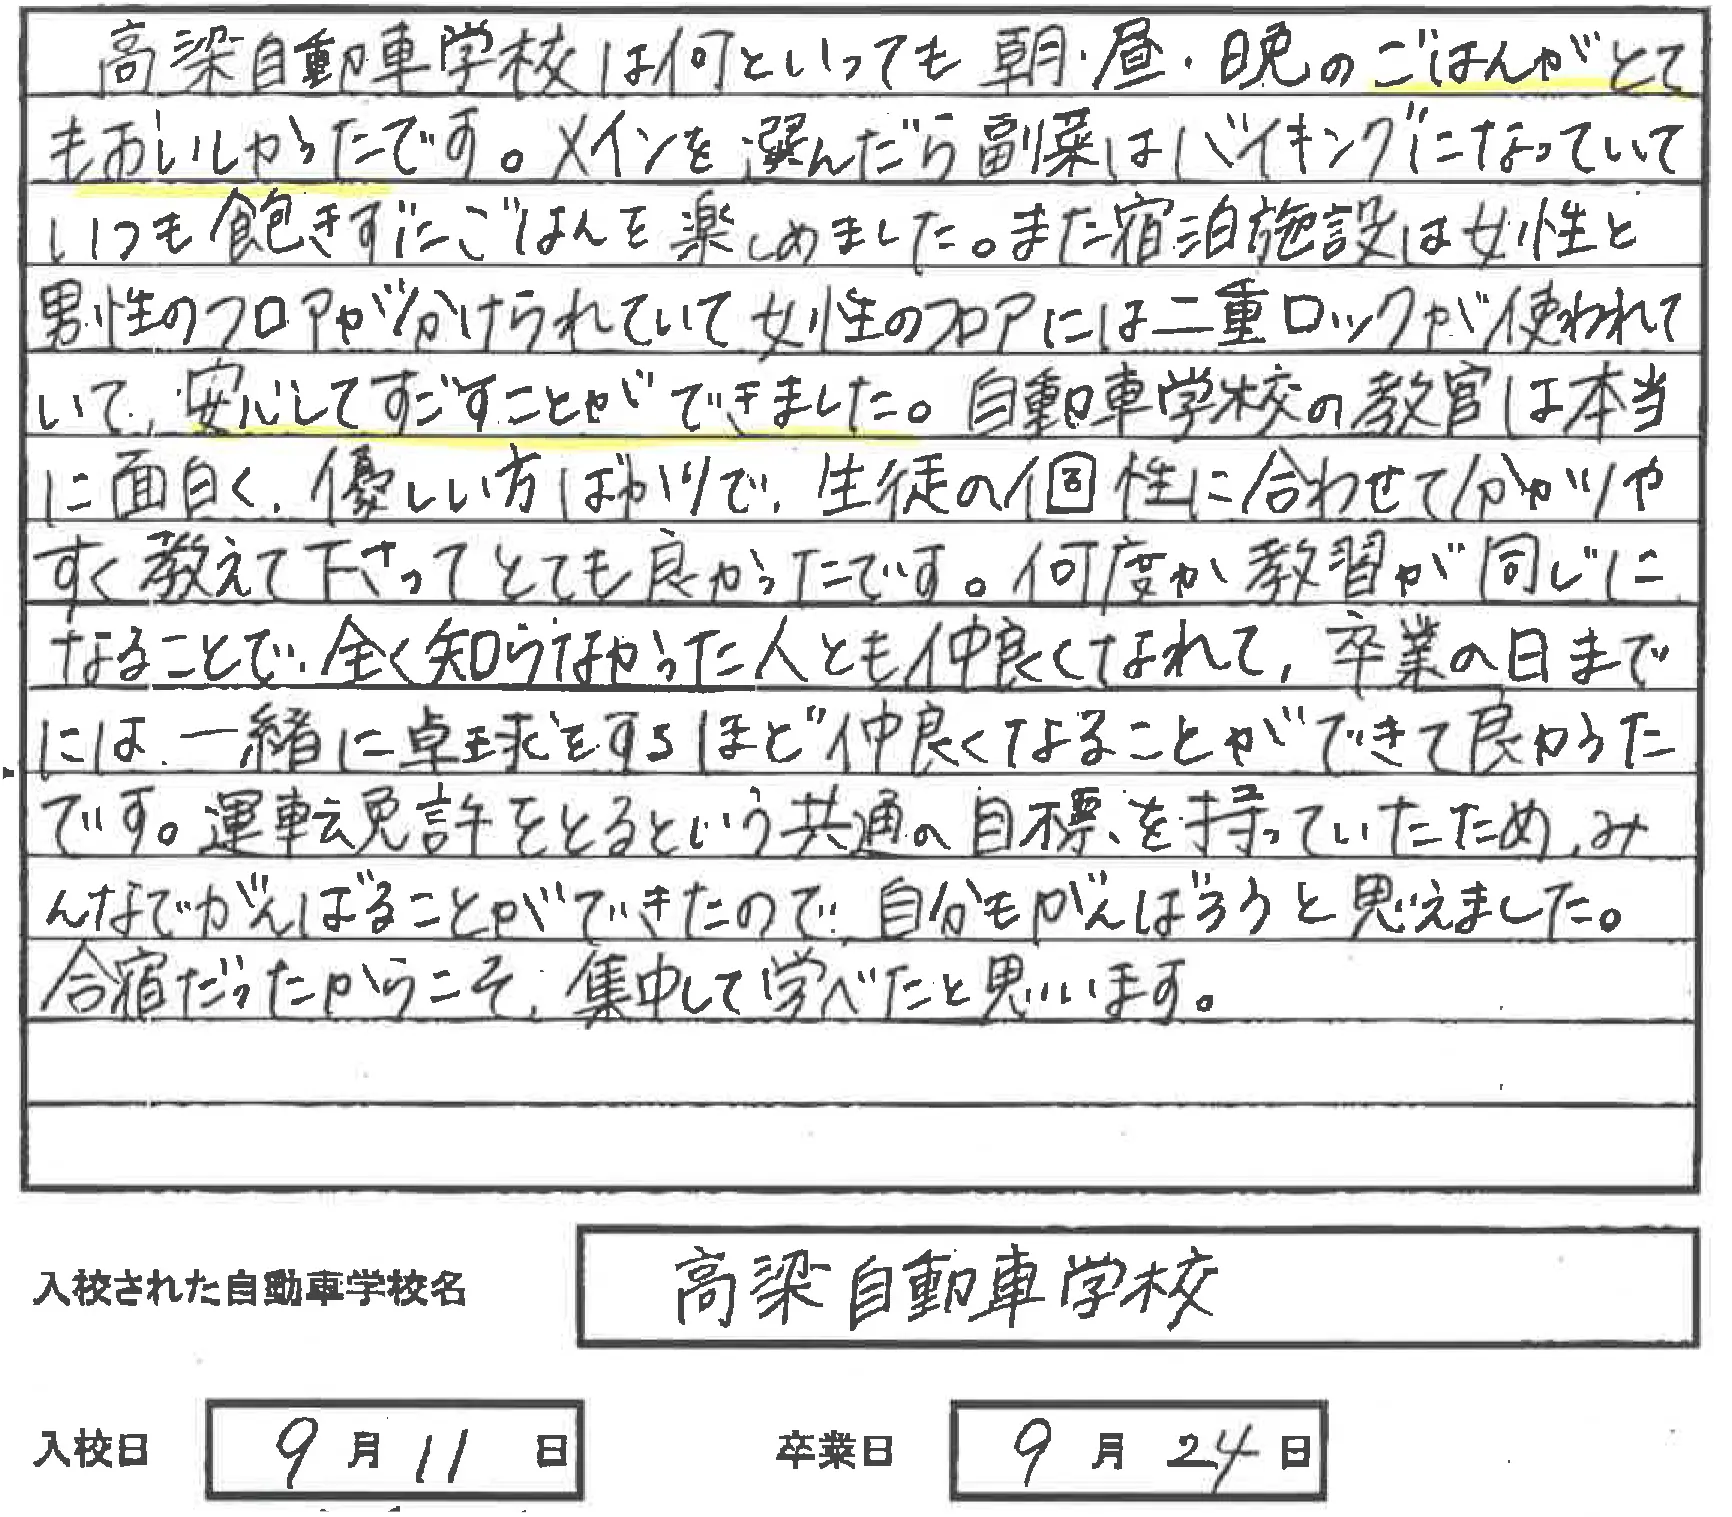 高梁自動車学校は何といっても朝・昼・晩のごはんがとて
もおいしかったです。メインを選んだら副菜はバイキングになっていて
いつも飽きずにごはんを楽しめました。また宿泊施設は女性と
男性のフロアが分けられていて女性のフロアには二重ロックが使われて
いて、安心してすごすことができました。自動車学校の教官は本当
に面白く、優しい方ばかりで、生徒の個性に合わせて分かりや
すく教えて下さってとても良かったです。何度か教習が同じに
なることで、全く知らなかった人とも仲良くなれて、卒業の日まで
には、一緒に卓球をするほど仲良くなることができて良かった
です。運転免許をとるという共通の目標を持っていたため、み
んなでがんばることができたので、自分もがんばろうと思えました。
合宿だったからこそ、集中して学べたと思います。
入校された自動車学校名 高梁自動車学校
入校日 9月11日 卒業日 9月24日